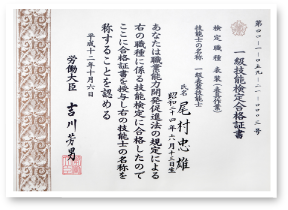 一級技能検定合格証書
検定職種 表装(表具作業)
技能士の名称 一級表装技能士
氏名 尾村忠雄
昭和二十四年六月十三日生
あなたは職業能力開発促進法の規定による
右の職種に係る技能検定に合格したので
ここに合格証書を授与し右の技能士の名称を
称することを認める
平成十二年十月六日
労働大臣 吉川芳男